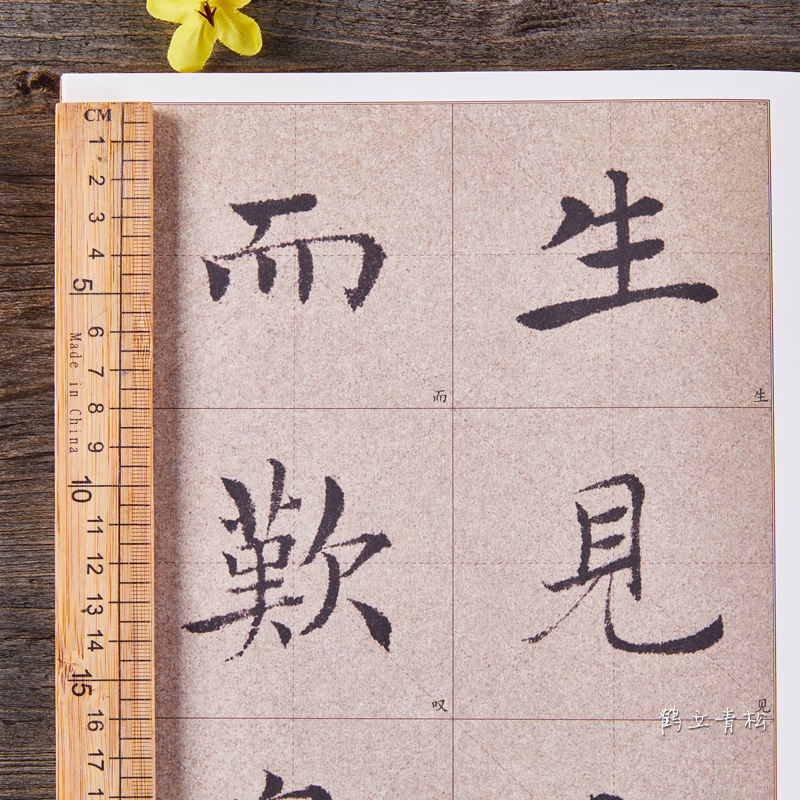 生
見
而
歎
生
见
而
叹
CM
1
2
3
4
5
6
7
8
9
10
11
12
13
14
15
16
17
Made in China
鹤立青松